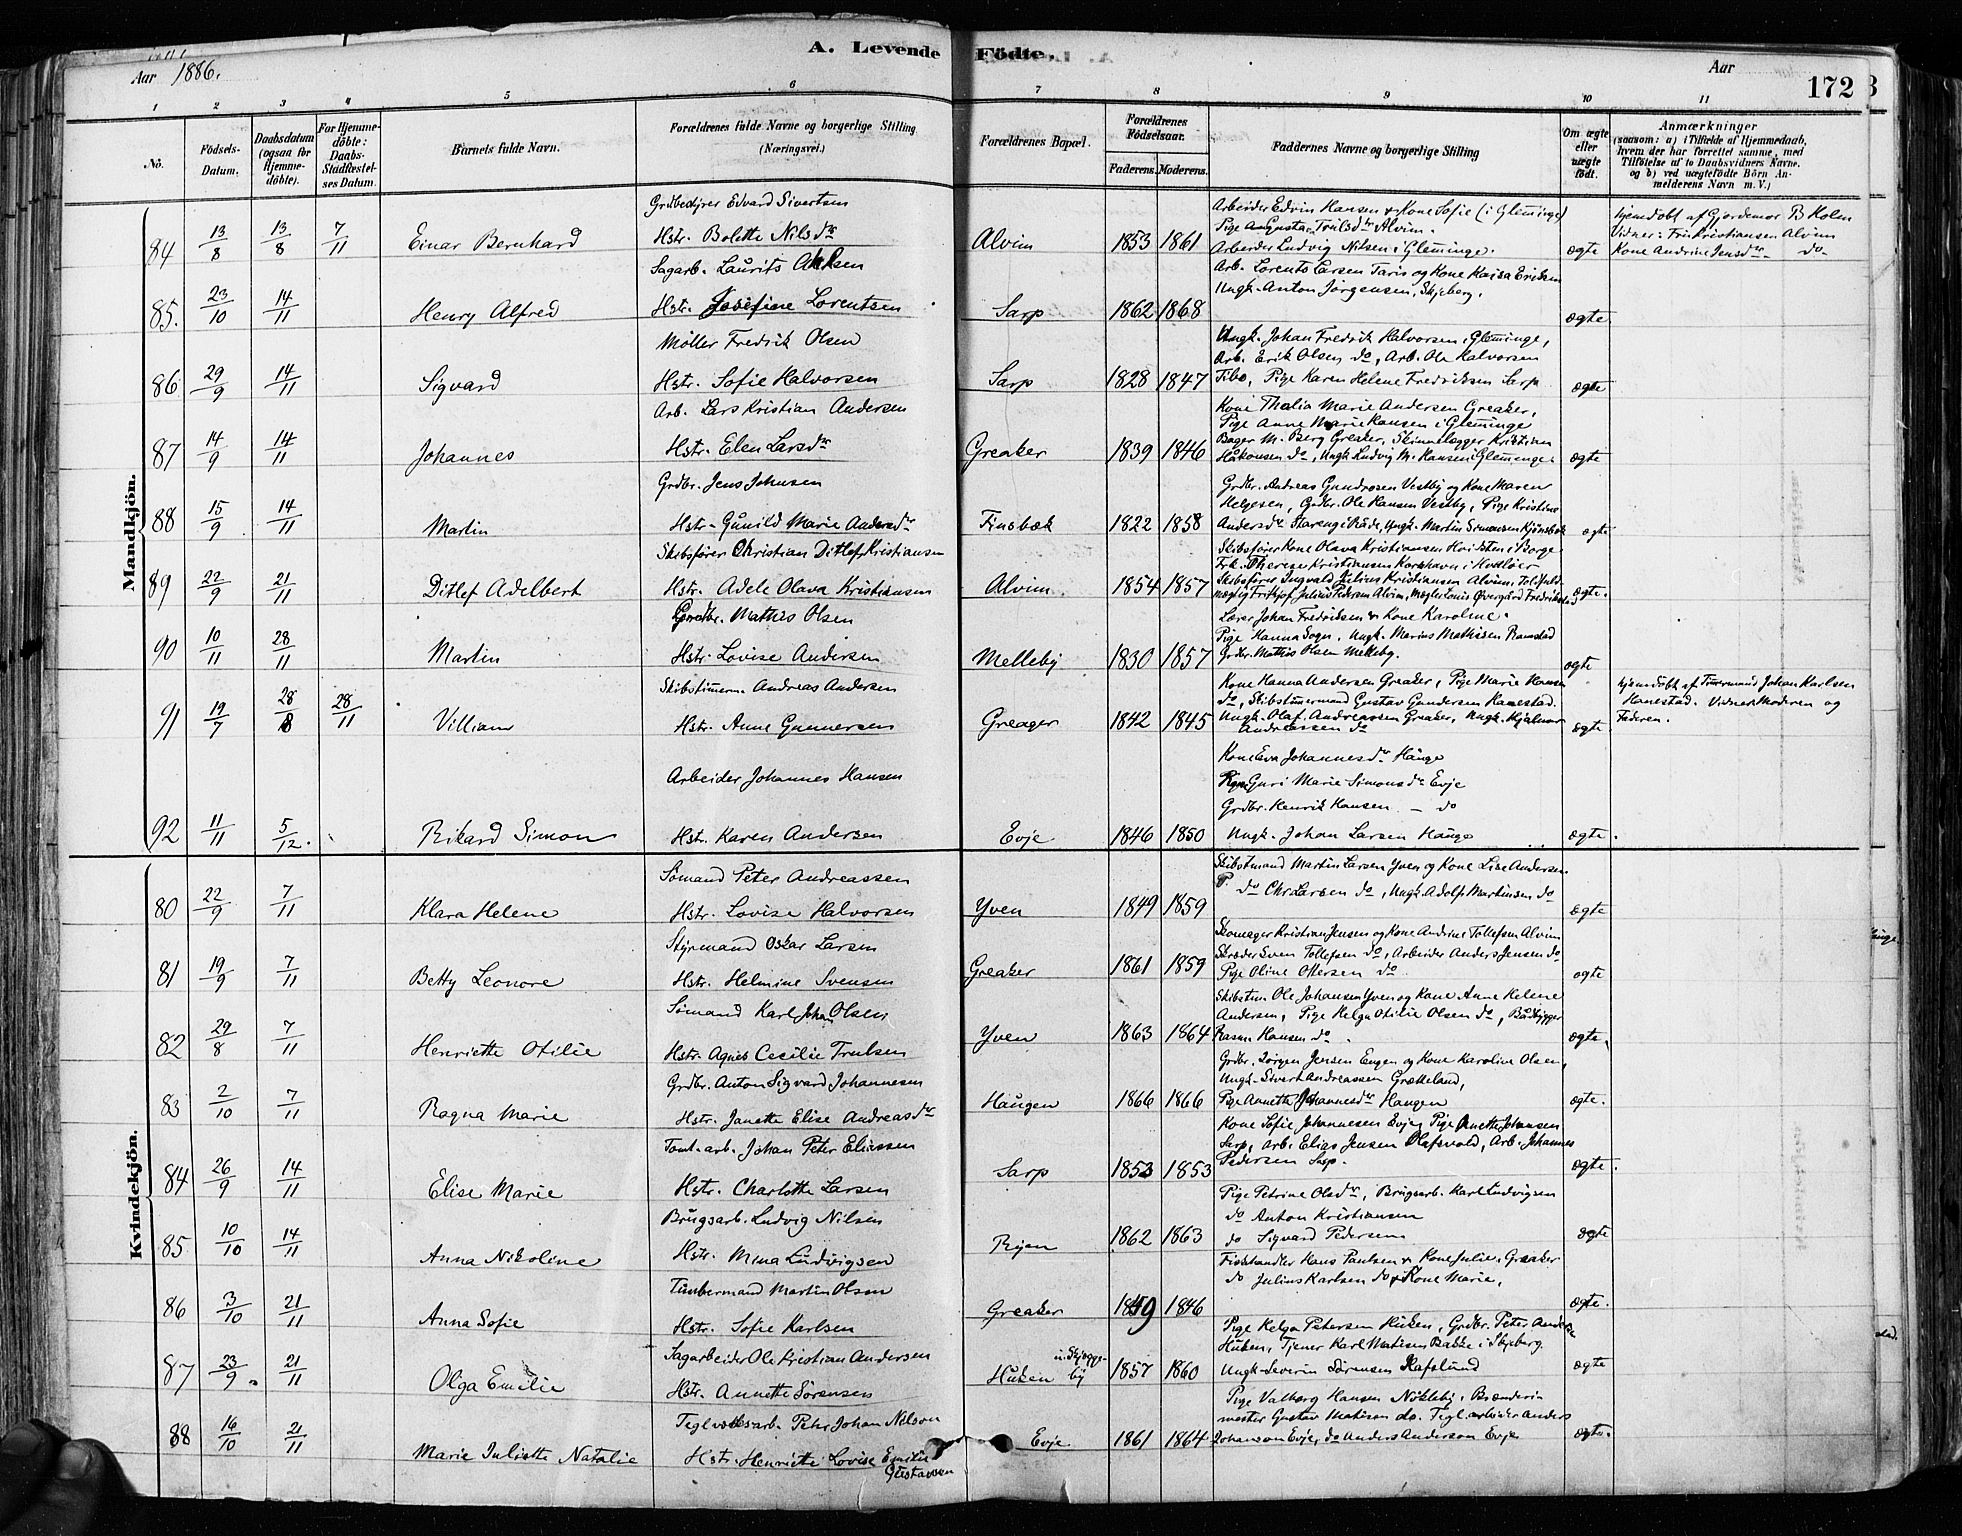 A. Levende Födte.
Aar 1886.
Aar
172
1 2 3 4 5 6 7 8 9 10 11
No.
Födsels-Datum.
Daabsdatum (ogsaa for Hjemmedöbte).
For Hjemmedöbte: Daabs-Stadfæstelses Datum.
Barnets fulde Navn.
Forældrenes fulde Navne og borgerlige Stilling (Næringsvei.)
Forældrenes Bopæl.
Forældrenes Födselsaar.
Faderens. Moderens.
Faddernes Navne og borgerlige Stilling
Om ægte eller uægte födt.
Anmærkninger
(saasom: a) i Tilfælde af Hjemmedaab,
hvem der har forrettet samme, med
Tilföielse af to Daabsvidners Navne.
og b) ved uægtefödte Börn An-
melderens Navn m. V.)
Mandkjön.
84 13/8 13/8 7/11 Einar Bernhard
Grdbedyrer Edvard Sivertsen
Hstr. Bolette Nilsdr
Alvim 1853 1861
Arbeider Edvin Hansen & Kone Sofie (i Glemminge)
Pige Augusta Trulsdr Alvim.
Arbeider Ludvig Nilsen i Glemminge.
ægte
hjemdöbt af Gjordemor B Holm
Vidner: Fru Kristiansen Alvim
Kone Andrine Jensdr do.
85. 23/10 14/11 Henry Alfred
Sagarb. Laurits
Hstr. Josefine Lorentsen
Sarp 1862 1868
Arb. Lorents Larsen Taris og Kone Kaisa Eriksen
Ungk. Anton Jörgensen, Skjeberg.
ægte
86 29/9 14/11 Sigvard
Møller Fredrik Olsen
Hstr. Sofie Halvorsen
Sarp 1828 1847
Ungk. Johan Fredrik Halvorsen i Glemminge,
Arb. Erik Olsen do, Arb. Ole Halvorsen
Pige Karen Helene Fredriksen Sarp
ægte
87 14/9 14/11 Johannes
Arb. Lars Kristian Andersen
Hstr. Elen Larsdr
Greaker 1839 1846
Kone Thalia Marie Andersen Greaker,
Pige Anne Marie Hansen i Glemminge
Bager M. Berg Greaker, Skinnelægger Kristian
Håkonsen do, Ungk Ludvig M. Hansen i Glemminge.
ægte
88 15/9 14/11 Martin
Grdbr. Jens Johnsen
Hstr. Gunild Marie Andersdr
Finsbæk 1822 1858
Grdbr. Andreas Gundrosen Vestby og Kone Maren
Helgesen, Grdbr. Ole Hansen Vestby, Pige Kristine
Andersdr i Råde, Ungk. Martin Simonsen
ægte
89 22/9 21/11 Ditlef Adelbert
Skibsfører Christian Ditlef Kristiansen
Hstr. Adele Olava Kristiansen
Alvim. 1854 1857
Skibsfører Kone Olava Kristiansen Hvidsten i Borge
Frk. Therese Kristiansen Korshavn i Hvaløer
Skibsfører Ingvald Julius Kristiansen Alvim,
Julius Pedersen Alvim, Mægler Louis Øvergård Fredrikstad
ægte
90 10/11 28/11 Martin
Grdbr. Mathis Olsen
Hstr. Lovise Andersen
Melleby 1830 1857
Lærer Johan Fredriksen & Kone Karoline.
Pige Hanna Sogn, Ungk. Marius Mathisen Ramstad
Grdbr. Mathis Olsen Melleby.
ægte
91 19/7 28/8 28/11 Villiam
Skibstimerm. Andreas Andersen
Hstr. Anne Gunnersen
Greager 1842 1845
Kone Hanna Andersen Greaker, Pige Marie Hansen
do, Skibstimmermand Gustav Gundersen Hanestad.
Ungk. Olaf Andreassen Greaker, Ungk. Hjalmar
Andreassen do
ægte
hjemdöbt af Tømmermand Johan Karlsen
Hanestad. Vidner: Moderen og
Faderen.
92 11/11 5/12. Rikard Simon
Arbeider Johannes Hansen
Hstr. Karen Andersen
Evje 1846 1850
Kone Eva Johannesdr Hauge
Pige Guri Marie Simonsdr Evje
Grdbr. Henrik Hansen — do
Ungk. Johan Larsen Hauge
ægte.
Kvindekjön.
80 22/9 7/11 Klara Helene
Sømand Peter Andreassen
Hstr. Lovise Halvorsen
Yven 1849 1859
Skibstmand Martin Larsen Yven og Kone Lise Andersen
P. do Chr Larsen do, Ungk. Adolf Martinsen do
ægte
81 19/9 7/11 Betty Leonore
Styrmand Oskar Larsen
Hstr. Helmine Svensen
Greaker 1861 1859
Skomager Kristian Jensen og Kone Andrine Tollefsen Alvim
Skræder Sven Tollefsen do, Arbeider Anders Jensen do
Pige Oline Ottersen do
ægte
82 29/8 7/11 Henriette Otilie
Sømand Karl Johan Olsen
Hstr. Agnes Cecilie Trulsen
Yven 1863 1864
Skibstm. Ole Johansen Yven og Kone Anne Helene
Andersen, Pige Helga Otilie Olsen do, Bådbygger
Rasm Hansen do.
ægte
83 2/10 7/11 Ragna Marie
Grdbr. Anton Sigvard Johannesen
Hstr. Janette Elise Andreasdr
Haugen 1866 1866
Grdbr. Jörgen Jensen Engen og Kone Karoline Olsen,
Ungk. Sivert Andreassen Grækeland,
Pige Annette Johannesdr Haugen
ægte.
84 26/9 14/11 Elise Marie
Tomt-arb. Johan Peter Eliessen
Hstr. Charlotte Larsen
Sarp 1853 1853
Kone Sofie Johannesen Evje, Pige Anette Johansen
Sarp, Arb. Elias Jensen Olafsvold, Arb. Johannes
Pedersen Sarp.
ægte.
85 10/10 14/11 Anna Nikoline
Brugsarb. Ludvig Nilsen
Hstr. Mina Ludvigsen
Ryen 1862 1863
Pige Petrine Olsdr, Brugsarb. Karl Ludvigsen
do Anton Kristiansen
do Sigvard Pedersen
ægte
86 3/10 21/11 Anna Sofie
Timbermand Martin Olsen
Hstr. Sofie Karlsen
Greaker 1849 1846
Fiskhandler Hans Paulsen & Kone Julie, Greaker
do Julius Karlsen do & Kone Marie,
ægte.
87 23/9 21/11 Olga Emilie
Sagarbeider Ole Kristian Andersen
Hstr. Annette Sörensen
Huken u. Skjeggeby 1857 1860
Pige Helga Petersen Huken, Grdbr. Peter
Huken, Tjener Karl Matisen Bakke i Skjeberg.
Ungk. Severin Sörensen Hafslund
ægte
88 16/10 21/11 Marie Juliette Natalie
Teglværksarb. Peter Johan Nilsen
Hstr. Henriette Lovise Emilie
Gustavsen
Evje 1861 1864
Pige Valborg Hansen Nökleby, Brænderi-
mester Gustav Matison do. Tegl. arbeider Anders
Johanson Evje, do Anders Anderson Evje
ægte.